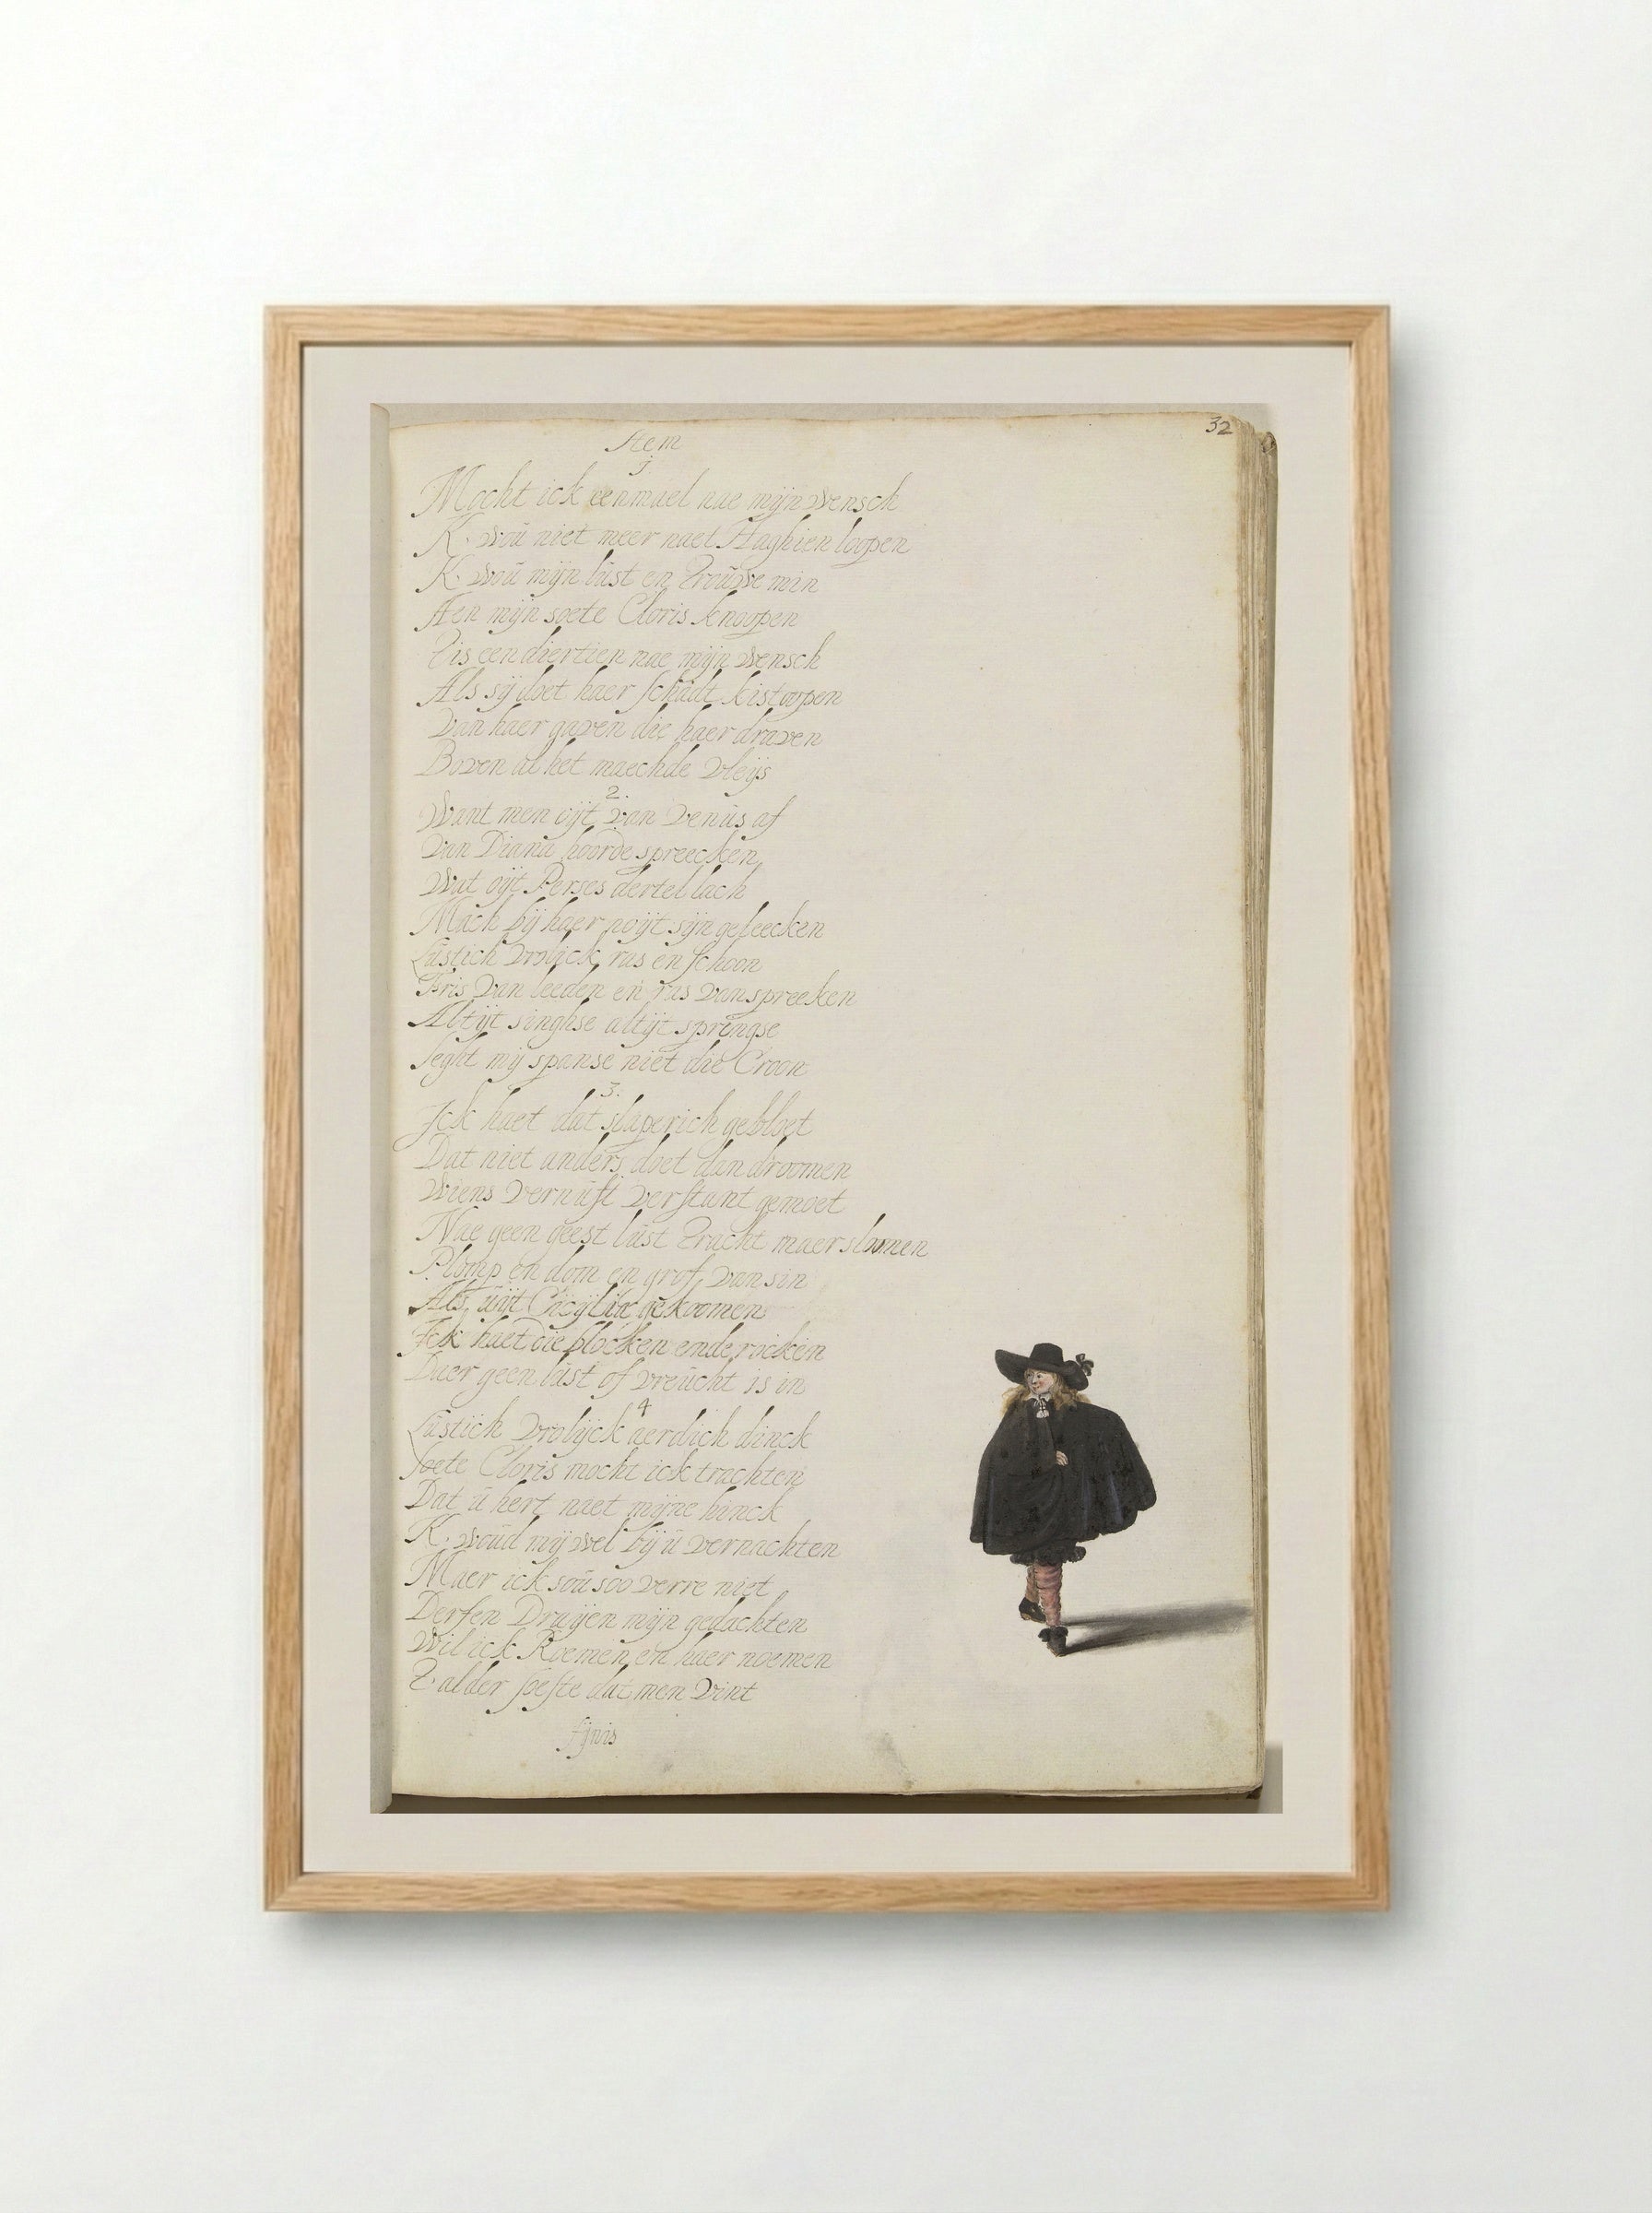 32
Stem
j
Mocht ick eenmael nae mijn wensch
K. woú niet meer nae't Haghien loopen
K. woú mijn lúst en troúwe min
Aen mijn soete Cloris knoopen
Tis een diertien nae mijn wensch
Als sij doet haer schadt kist oopen
Van haer gaven die haer draven
Boven al het maechde vleijs
2.
Want men oijt van Venús af
Van Diana hoorde spreecken
Wat oijt Perses dertel lach
Mach bij haer noijt sijn geleecken
Lústich vrolick ras en schoon
Fris van leeden en ras van spreeken
Altijt singhse altijt springse
Seght mij spanse niet die Croon
3.
Ick haet dat slaperich gebloet
Dat niet anders doet dan droomen
Wiens vernúft verstant gemoet
Nae geen geest lúst tracht maer sloomen
Plomp en dom en grof van sin
Als úijt gekoomen
Ick haet die blocken ende rocken
Daer geen lúst of vreúcht is in
4
Lústich vrolijck aerdich dinck
Soete Cloris mocht ick trachten
Dat ú hert naet mijne hinck
K. woúd mij wel bij ú vernachten
Maer ick soú soo verre niet
Derfen Draijen mijn gedachten
Wil ick Roemen en haer noemen
T. alder soeste dat men vint
fijnis